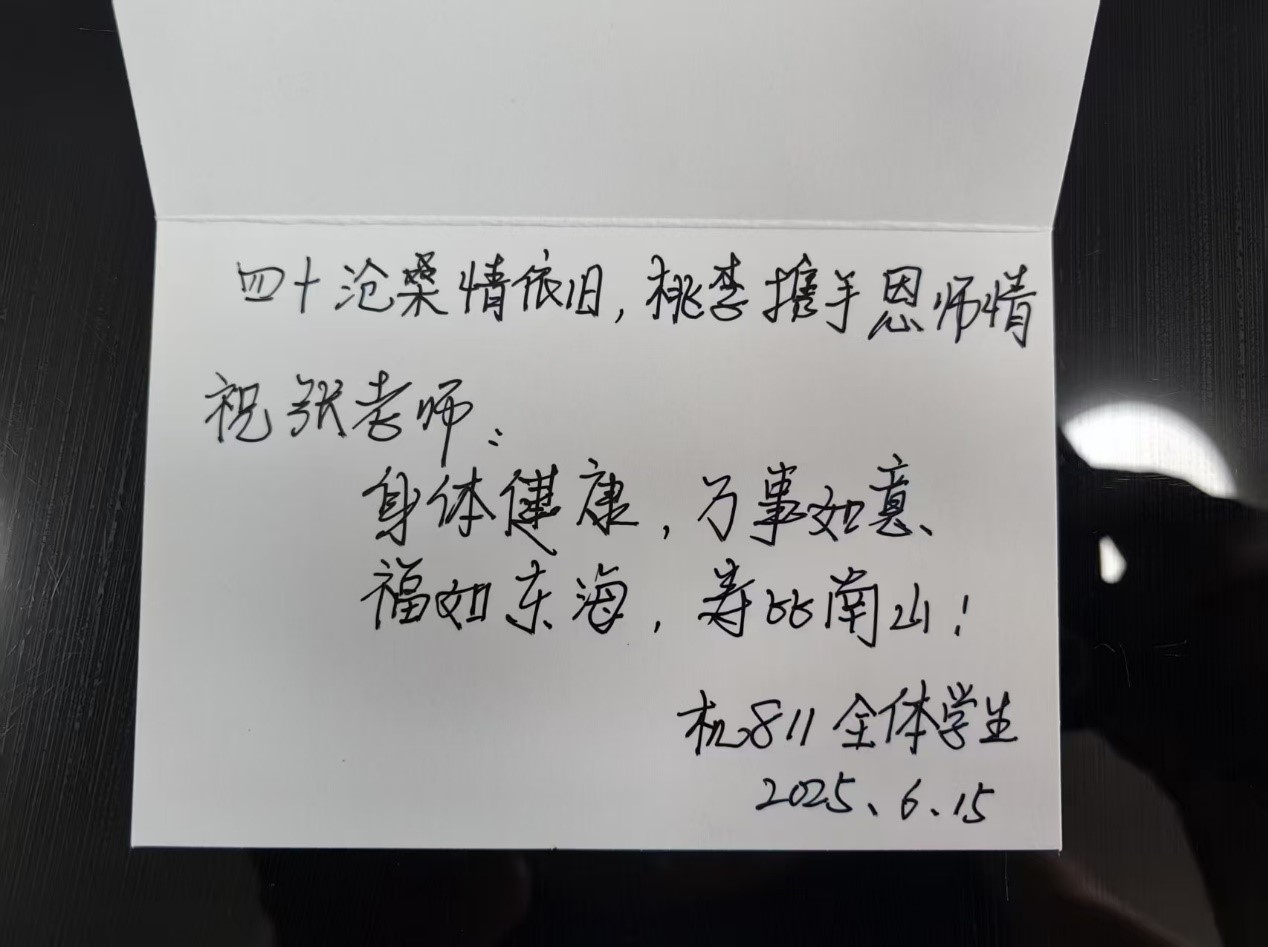 四十沧桑情依旧,桃李携手恩师情
祝张老师:
身体健康,万事如意、
福如东海,寿比南山!
机811全体学生
2025、6、15